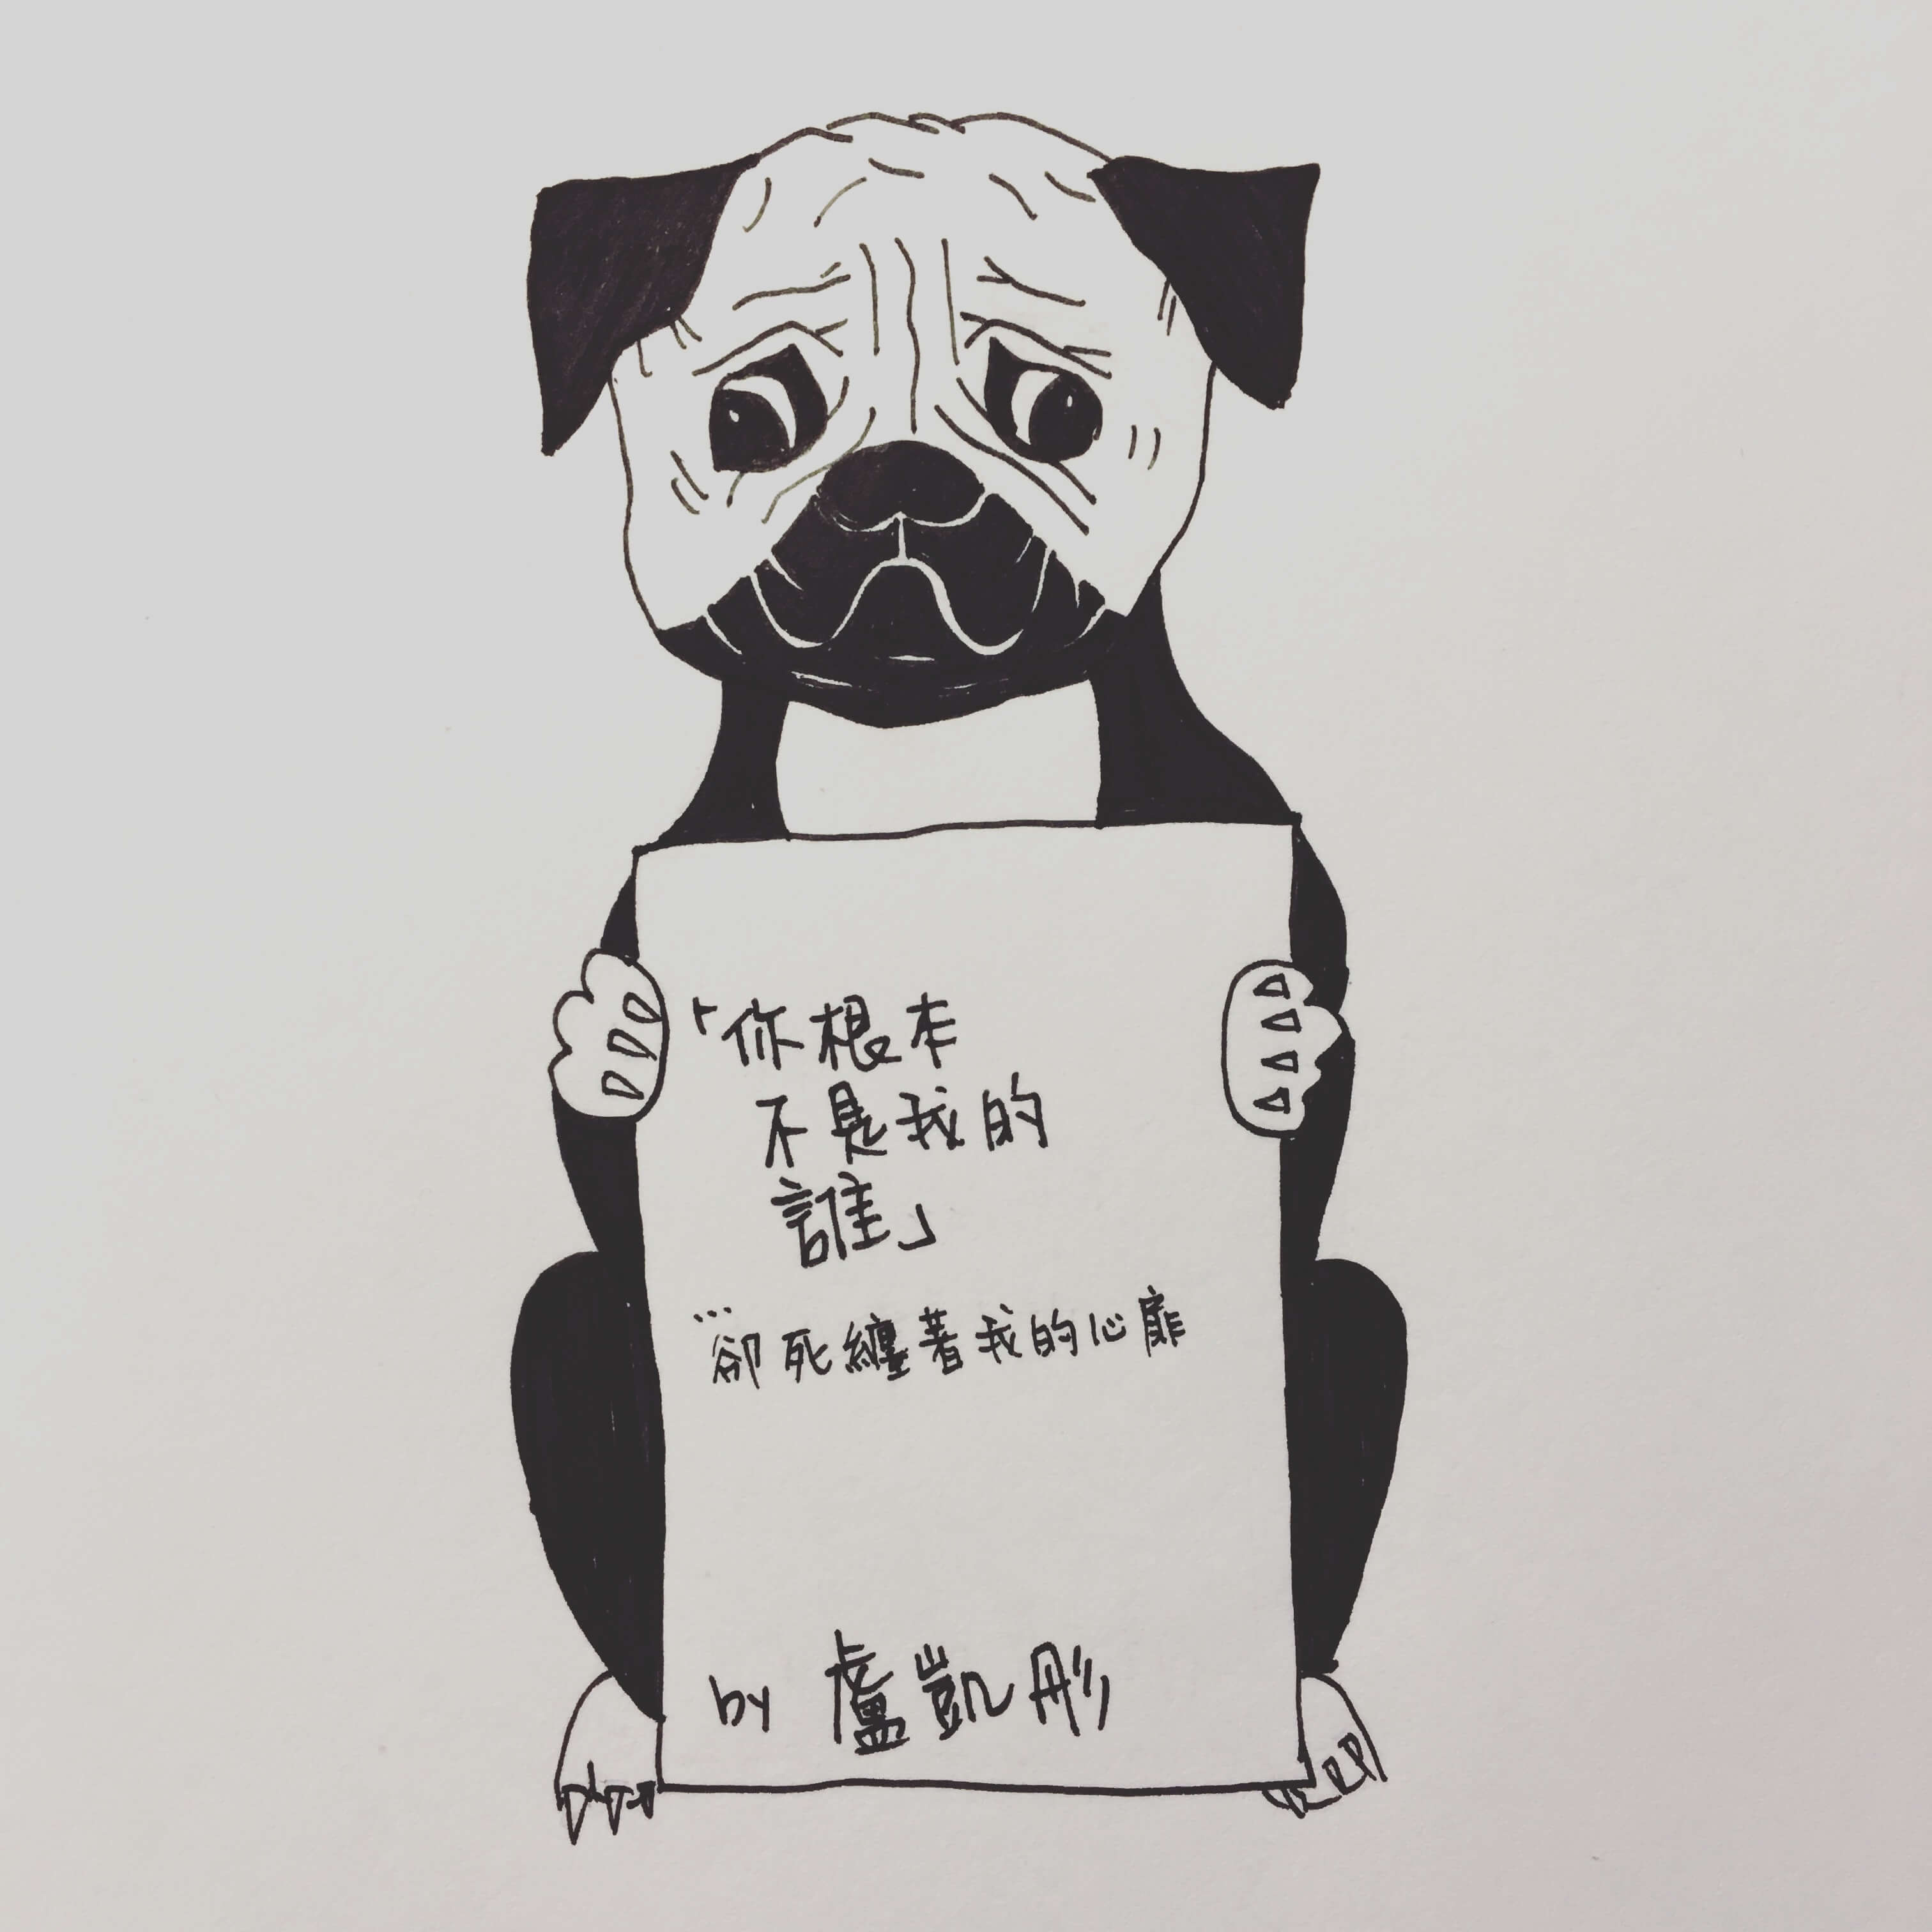 「你根本
不是我的
誰」
...卻死纏著我的心扉
by 盧凱彤